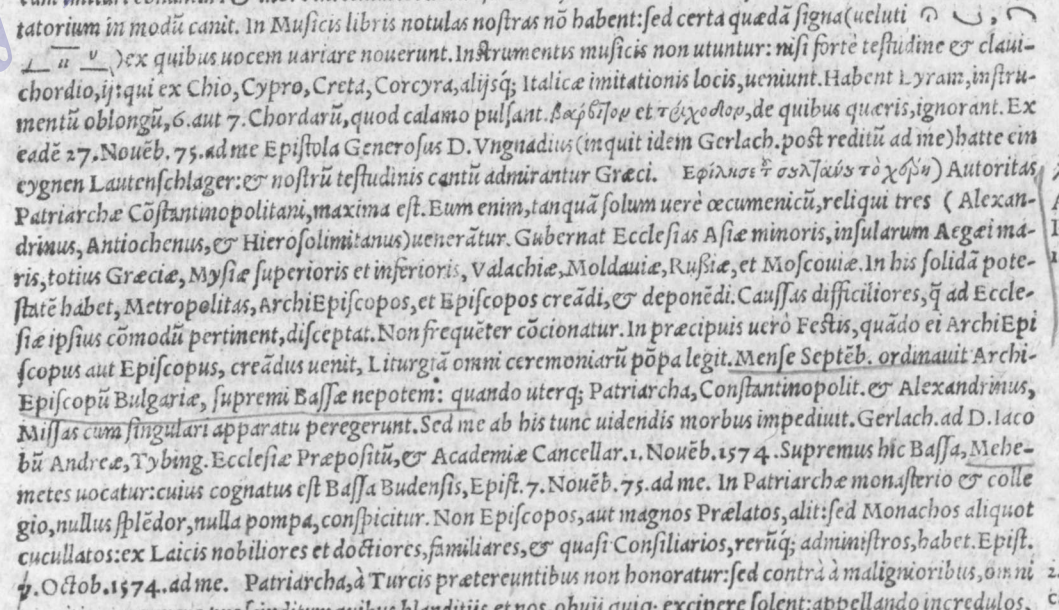 tatorium in modū canit. In Musicis libris notulas nostras nō habent: sed certa quædā signa (ueluti
) ex quibus uocem uariare nouerunt. Instrumentis musicis non utuntur: nisi fortè testudine & claui-
chordio, ij: qui ex Chio, Cypro, Creta, Corcyra, alijsq́; Italicæ imitationis locis, ueniunt. Habent Lyram, instru-
mentū oblongū, 6. aut 7. Chordarū, quod calamo pulsant. et de quibus quæris, ignorant. Ex
eadē 27. Nouēb. 75. ad me Epistola Generosus D. Vngnadius (inquit idem Gerlach. post reditū ad me) hatte ein
eygnen Lautenschlager: & nostrū testudinis cantū admirantur Græci. τὸ ) Autoritas
Patriarchæ Cōstantinopolitani, maxima est. Eum enim, tanquā solum uere œcumenicū, reliqui tres ( Alexan-
drinus, Antiochenus, & Hierosolimitanus) uenerātur. Gubernat Ecclesias Asiæ minoris, insularum Aegæi ma-
ris, totius Græciæ, Mysiæ superioris et inferioris, Valachiæ, Moldauiæ, Rußiæ, et Moscouiæ. In his solidā pote-
statē habet, Metropolitas, ArchiEpiscopos, et Episcopos creādi, & deponēdi. Caussas difficiliores, q̄ ad Eccle-
siæ ipsius cōmodū pertinent, disceptat. Non frequēter cōcionatur. In præcipuis uerò Festis, quādo ei ArchiEpi
scopus aut Episcopus, creādus uenit, Liturgiā omni ceremoniarū pōpa legit. Mense Septēb. ordinauit Archi-
Episcopū Bulgariæ, supremi Bassæ nepotem: quando uterq; Patriarcha, Constantinopolit. & Alexandrinus,
Missas cum singulari apparatu peregerunt. Sed me ab his tunc uidendis morbus impediuit. Gerlach. ad D. Iaco
bū Andreæ, Tybing. Ecclesiæ Præpositū, & Academiæ Cancellar. 1. Nouēb. 1574. Supremus hic Bassa, Mehe-
metes uocatur: cuius cognatus est Bassa Budensis, Epist. 7. Nouēb. 75. ad me. In Patriarchæ monasterio & colle
gio, nullus splēdor, nulla pompa, conspicitur. Non Episcopos, aut magnos Prælatos, alit: sed Monachos aliquot
cucullatos: ex Laicis nobiliores et doctiores, familiares, & quasi Consiliarios, rerūq́; administros, habet. Epist.
7. Octob. 1574. ad me. Patriarcha, à Turcis prætereuntibus non honoratur: sed contrà à malignioribus, omni
blanditijs et nos, obuij quiq; excipere solent: appellando incredulos,